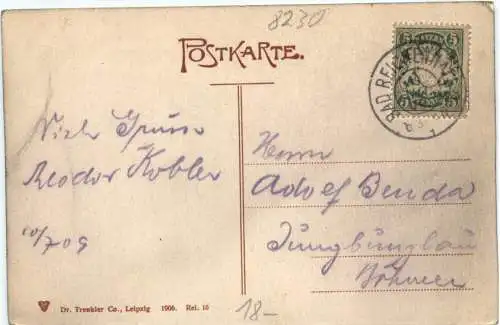 8230
POSTKARTE.
5 5
BAD REI
Viele Grüsse
Teodor Kobler
10/7 09
Herrn
Adolf Benda
Jungbunzlau
Böhmen
Dr. Trenkler Co., Leipzig 1906. Rei. 10
18-